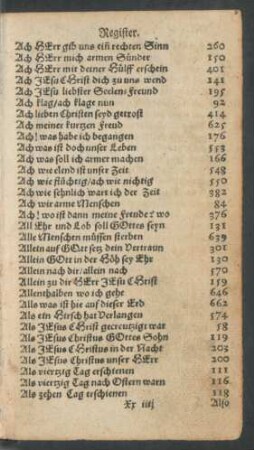 Register.
Ach HErr gib uns eiñ rechten Sinn 260
Ach HErr mich armen Sünder 150
Ach HErr mit deiner Hülff erschein 401
Ach JEsu CHrist dich zu uns wend 241
Ach JEsu liebster Seelen-Freund 195
Ach klag/ ach klage nun 92
Ach lieben Christen seyd getrost 414
Ach meiner kurtzen Freud 625
Ach! was habe ich begangen 176
Ach was ist doch unser Leben 553
Ach was soll ich armer machen 166
Ach wie elend ist unser Zeit 548
Ach wie flüchtig/ ach wie nichtig 550
Ach wie sehnlich wart ich der Zeit 382
Ach wir arme Menschen 84
Ach! wo ist dann meine Freude? wo 376
All Ehr und Lob soll GOttes seyn 131
Alle Menschen müssen sterben 639
Allein auf GOtt setz dein Vertraun 301
Allein GOtt in der Höh sey Ehr 130
Allein nach dir/ allein nach 570
Allein zu dir HErr JEsu CHrist 159
Allenthalben wo ich gehe 646
Also was ist hie auf dieser Erd 662
Als ein Hirsch hat Verlangen 574
Als JEsus CHrist gecreutziget war 58
Als JEsus Christus GOttes Sohn 119
Als JEsus Christus in der Nacht 203
Als JEsus Christus unser HErr 200
Als viertzig Tag erschienen 111
Als viertzig Tag nach Ostern warn 116
Als zehen Tag erschienen 118
Xx iiij Also